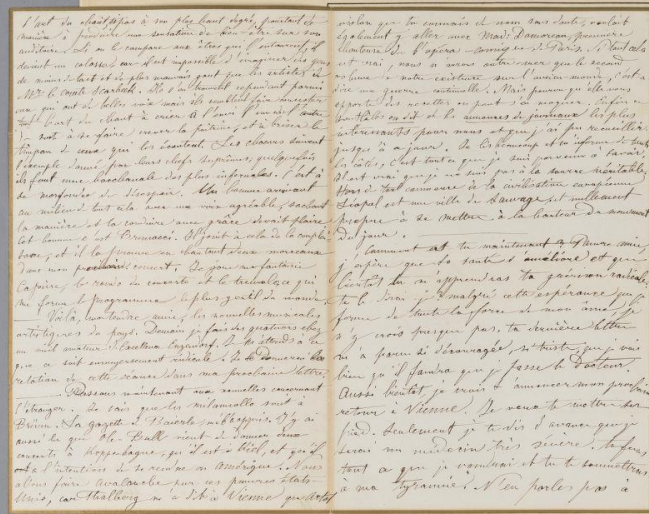 l'art du chant, pas à son plus haut degré, pourtant de
manière à produire une sensation de bien-être sur son
auditoire. Si on le compare aux êtres qui l'entourent, il
devient un colosse car il est impossible d'imaginer des gens
de moins de tact et de plus mauvais goût que les artistes de
Mr le comte Scarbeck. Ils s'en trouvent cependant parmi
eux qui ont de belles voix mais ils semblent faire consister
tout l'art du chant à crier à l'envi l'un de l'autre
soit à se faire crever la poitrine, et à briser le
timpan de ceux qui les écoutent. Les chœurs suivent
l'exemple donné par leurs chefs suprêmes, quelquefois
ils font une bacchanale des plus infernales. C'est à
se morfondre de désespoir. Un homme arrivant
au milieu de tout cela avec une voix agréable, sachant
la manière de la conduire avec grâce devait plaire
cet homme c'est Carmucci. Il joint à cela de la complai-
sance, et il la prouve en chantant deux morceaux
dans mon prochain concert. Je joue ma fantaisie
Caprice, le rondo du concerto et le tremolo ce qui
me forme le programme le plus gentil du monde.
— Voilà, ma tendre amie, les nouvelles musicales
artistiques du pays. Demain je fais des quatuors chez
un autre amateur
ce que ce soit ennuyeusement ridicule. Je te donnerai la
relation de cette séance dans ma prochaine lettre.
— Passons maintenant aux nouvelles concernant
l'étranger. Je sais que les milanollo sont à
Brünn. La gazette
aussi lu que Ole-Bull vient de donner deux
concerts à Coppenhague, qu'il est à Kiel, et qu'il
a l'intention de se rendre en Amérique. Nous
allons faire avalanche sur ces pauvres états-
Unis, car Thalberg m'a dit à Vienne que Artot
violon que tu connais de nom sans doute, voulait
également y aller avec Mad. Damoreau, première
chanteuse de l'opéra-comique de Paris. Si tout cela
est vrai, nous n'avons autre chose que le second
volume de notre existence sur l'ancien monde, c'est à
dire une guerre continuelle. Mais pourvu qu'elle nous
apporte des recettes on peut s'en moquer. Enfin ce
sont là les annonces de journaux les plus
intéressants pour nous et que j'ai pu recueillir
jusqu'à ce jour. Je lis beaucoup et m'informe de tous
les côtés, c'est tout ce que je suis parvenu à savoir.
Il est vrai que je ne suis pas à la source véritable
de tout commerce à la civilisation européenne
est une ville de sauvages et nullement
propre à se mettre à la hauteur du mouvement
du jour.
— Comment es-tu maintenant ô Pauvre amie,
j'espère que ta santé s'améliore et que
bientôt tu m'apprendras ta guérison radicale.
te le dirai-je ? malgré cette espérance que je
forme de toute la force de mon âme, je
n'y crois presque pas. ta dernière lettre
m'a paru si découragée, si triste, que je vois
bien qu'il faudra que je fasse le Docteur.
Aussi bientôt je crois t'annoncer mon prochain
retour à Vienne. Je veux te mettre sur
pied. Seulement je te dis d'avance que je
serai un médecin très sévère, tu feras
tout ce que je voudrai et tu te soumettras
à ma tyrannie. N'en parles pas à